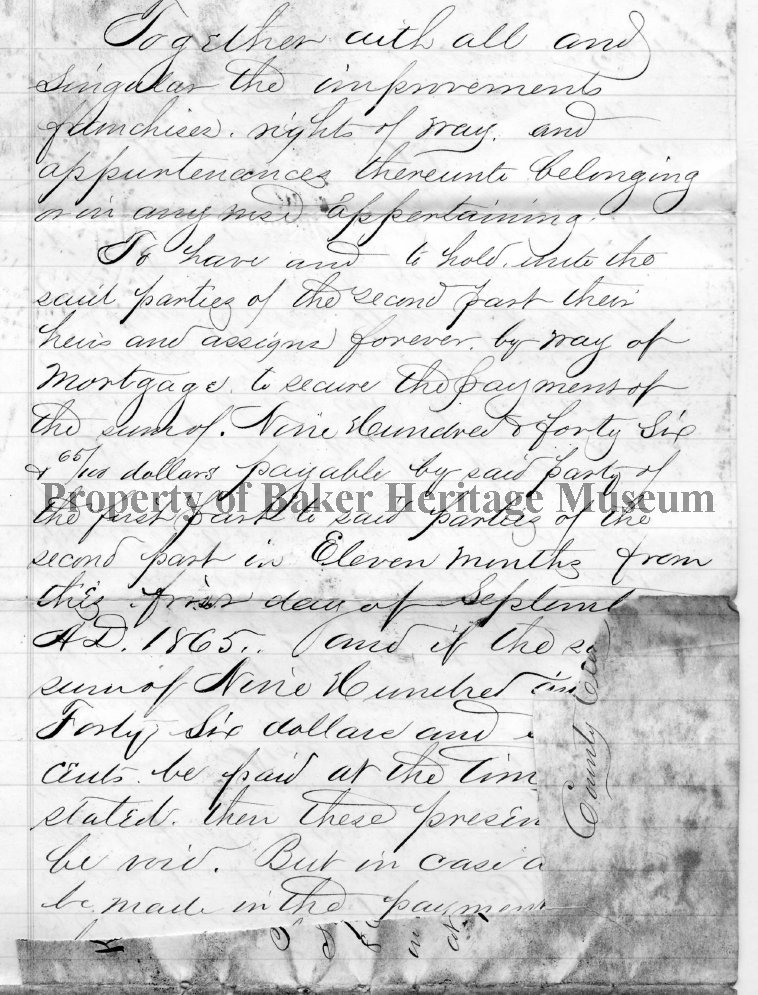 Together with all and
singular the improvements
franchises. rights of way. and
appurtenances thereunto belonging
or in any wise appertaining.
To have and to hold. unto the
said parties of the second part their
heirs and assigns forever. by way of
Mortgage. to secure the payment of
the sum of. Nine Hundred & forty Six
& 65/100 dollars payable by said party of
Property of Baker Heritage Museum
the first part to said parties of the
second part in Eleven Months from
this first day of Septemb
A.D. 1865.. and if the
sum of Nine Hundred
Forty Six dollars and
cents. be paid at the tim
stated. then these presen
be void. But in case
be made in the payment
County